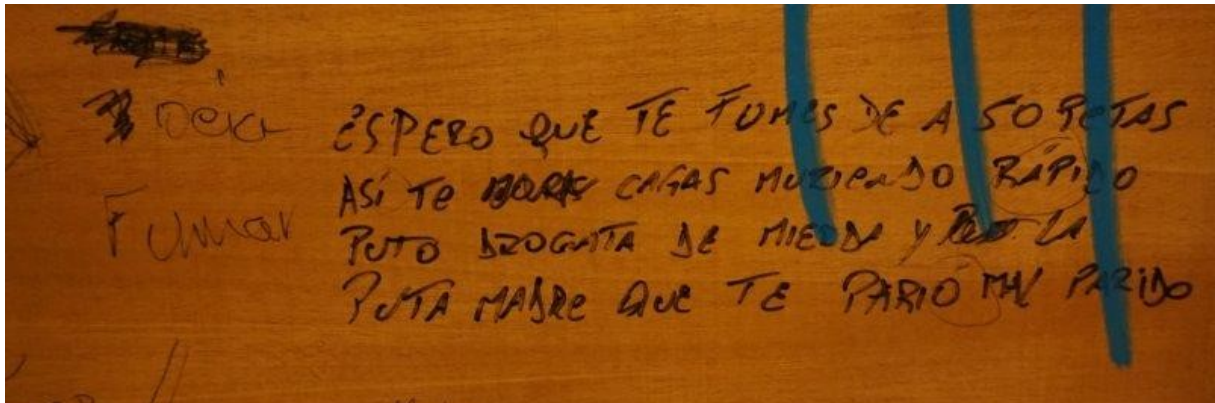 ESPERO QUE TE FUMES DE A 50 PETAS
ASÍ TE CAGAS MURIENDO RÁPIDO
PUTO DROGATA DE MIERDA Y LA
PUTA MADRE QUE TE PARIÓ MAL PARIDO
Fumar